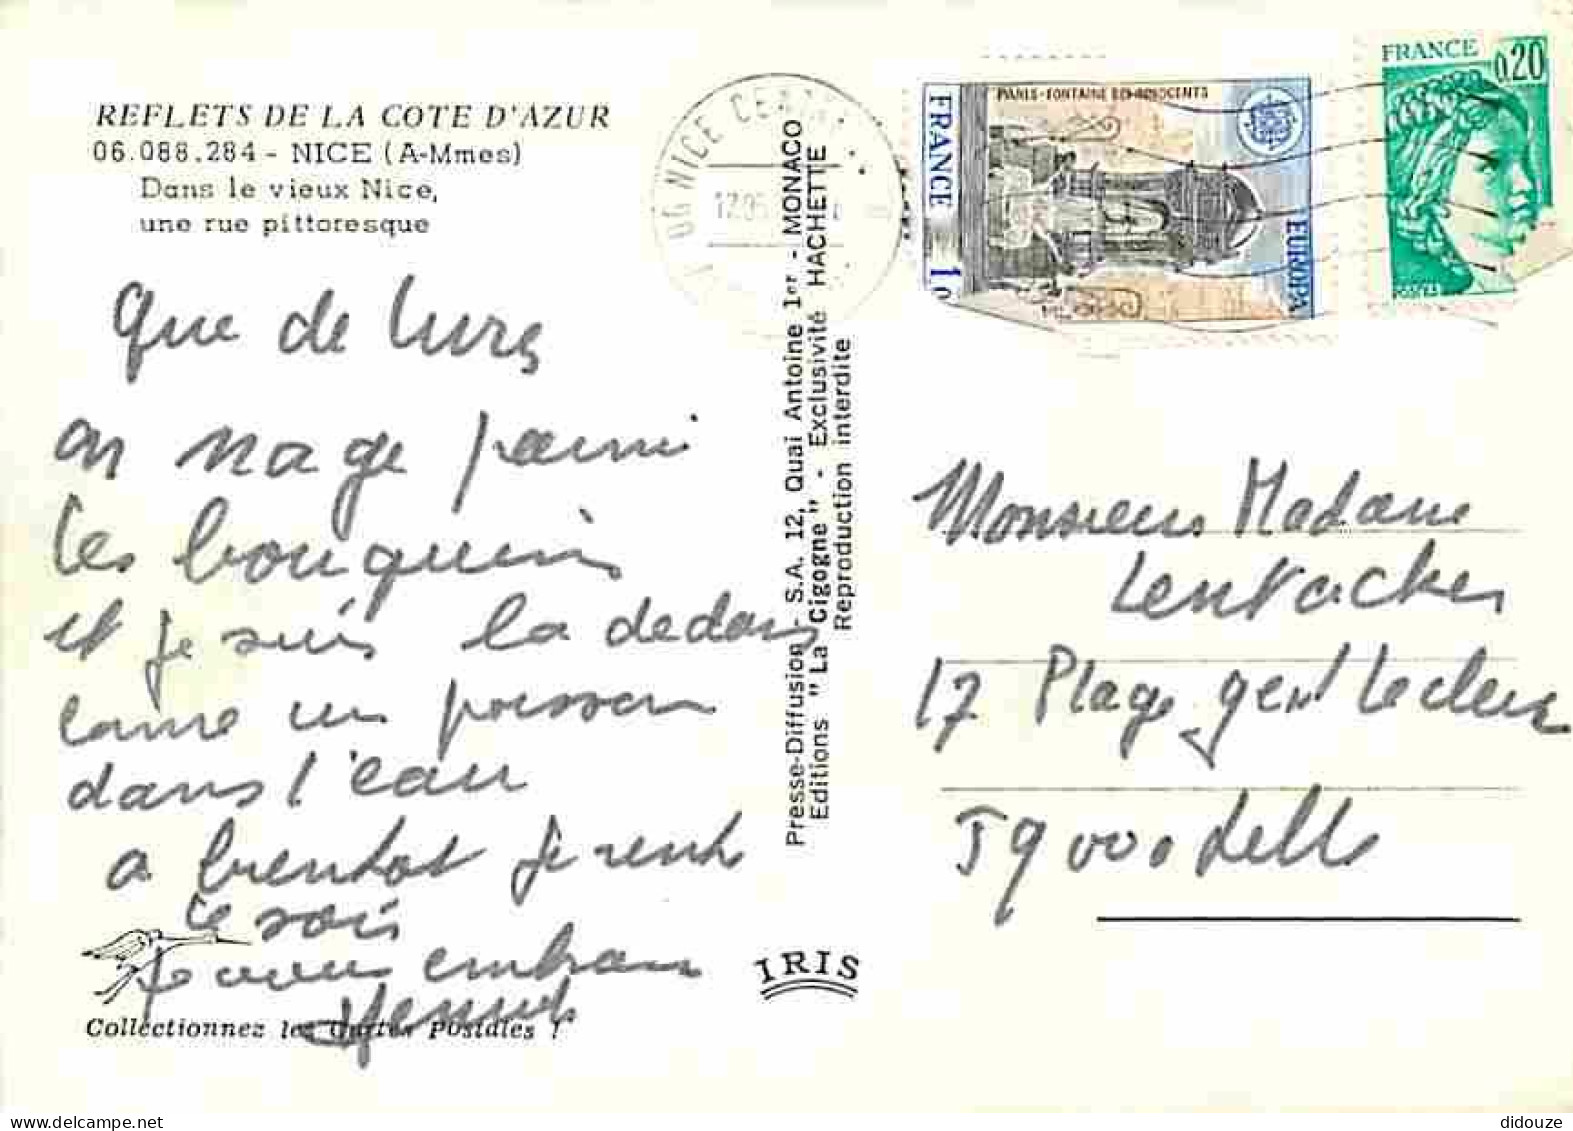 REFLETS DE LA COTE D'AZUR
06.088.284 - NICE (A-Mmes)
Dans le vieux Nice,
une rue pittoresque
que de livres
on nage parmi
les bouquins
et je suis la dedans
comme un poisson
dans l'eau
a bientot je rentre
ce soir
je vous embrasse
Collectionnez les Cartes Postales !
Presse-Diffusion - S.A. 12, Quai Antoine 1er - MONACO
Editions "La Cigogne" - Exclusivité HACHETTE
Reproduction interdite
IRIS
06 NICE CENTRE
PARIS-FONTAINE DES INNOCENTS
FRANCE
EUROPA
FRANCE 0,20
Monsieur Madame
17 Place gen l Leclerc
59000 Lille
didouze